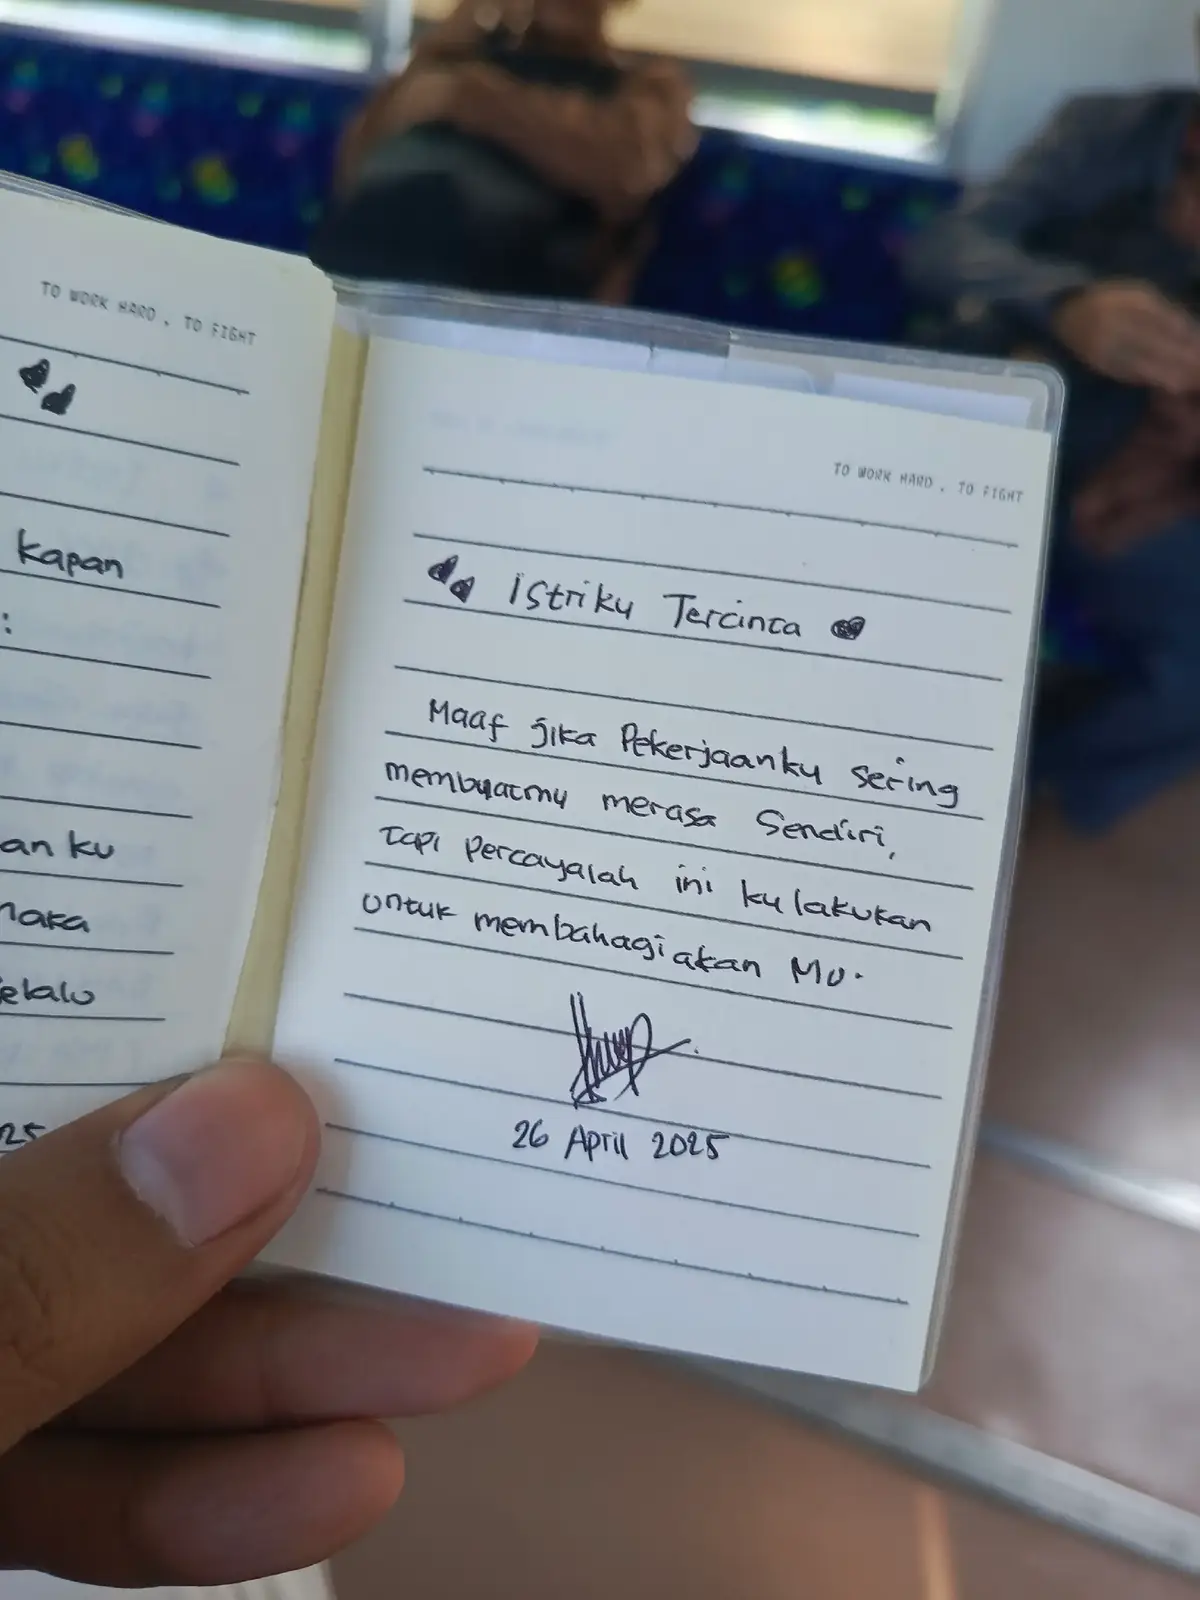 TO WORK HARD , TO FIGHT
Kapan
:
an ku
maka
elalu
25
TO WORK HARD , TO FIGHT
istriku Tercinta
Maaf jika Pekerjaanku sering
membuatmu merasa Sendiri,
tapi percayalah ini ku lakukan
untuk membahagiakan Mu.
26 April 2025